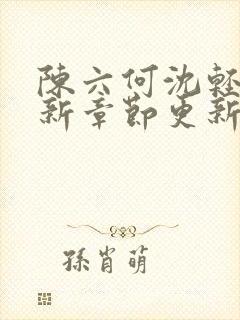 陳六何沈軽
新章節更新
孫肖萌